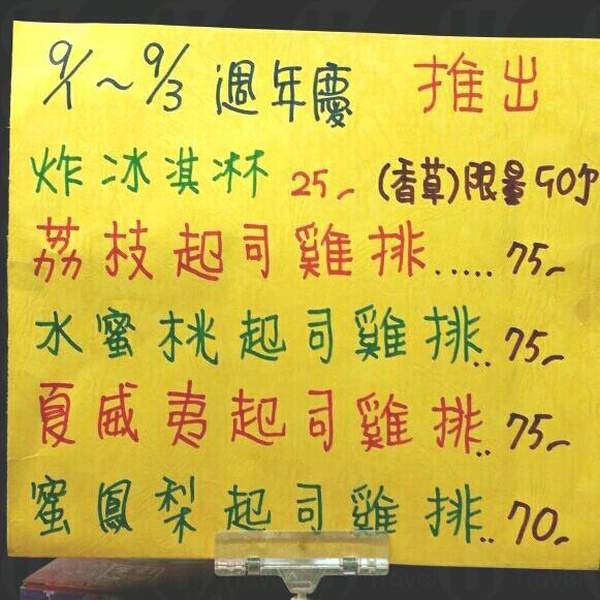 9/1~9/3 週年慶 推出
炸冰淇淋 25 (香草)限量50份
荔枝起司雞排..... 75
水蜜桃起司雞排.. 75
夏威夷起司雞排.. 75
蜜鳳梨起司雞排.. 70